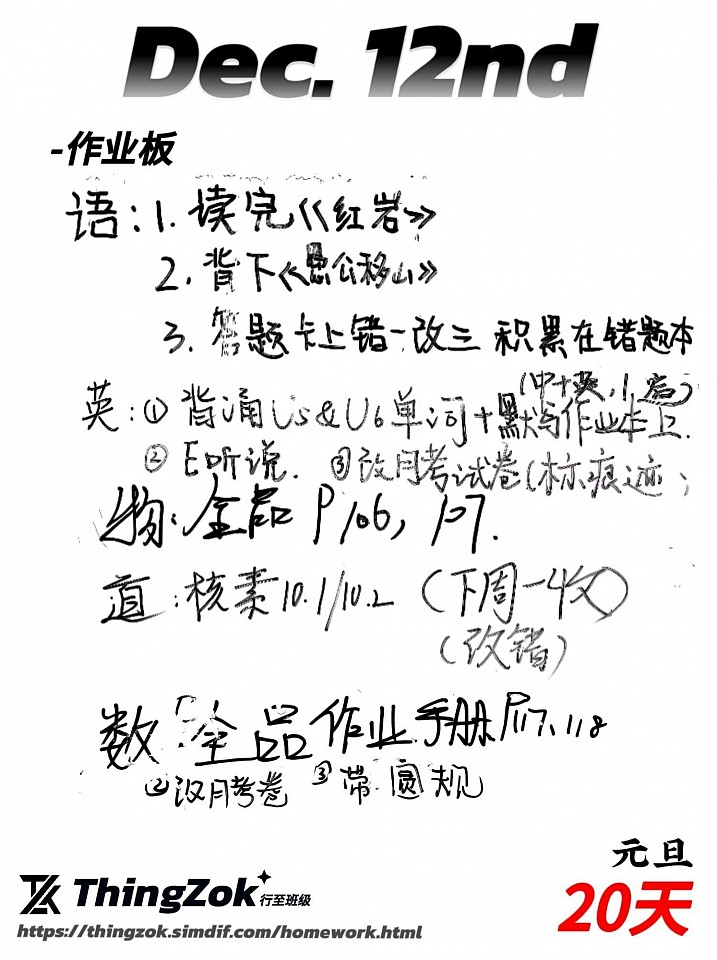 Dec. 12nd
-作业板
语:1.读完《红岩》
2.背下《愚公移山》
3.答题卡上错一改三 积累在错题本
(中+英,1启)
英:①背诵U5&U6单词+默写作业本上.
②E听说. ③改月考试卷(标痕迹;
物:全品P106,107.
道:核素10.1/10.2(下周一收)
(改错)
数:全品作业手册P117、118
②改月考卷 ③带圆规
元旦
20天
ThingZok 行至班级
https://thingzok.simdif.com/homework.html